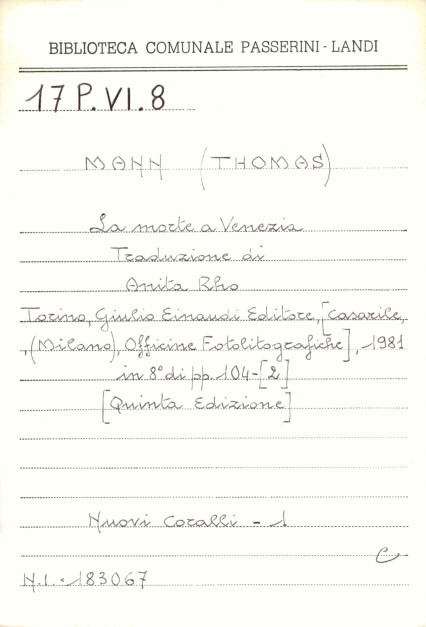 BIBLIOTECA COMUNALE PASSERINI - LANDI
17 P.VI.8
MANN (THOMAS)
La morte a Venezia
Traduzione di
Anita Rho
Torino, Giulio Einaudi Editore, [Casarile,
(Milano), Officine Fotolitografiche], 1981
in 8° di pp. 104-[2]
[Quinta Edizione]
Nuovi Coralli - 1
C
N.I. 183067